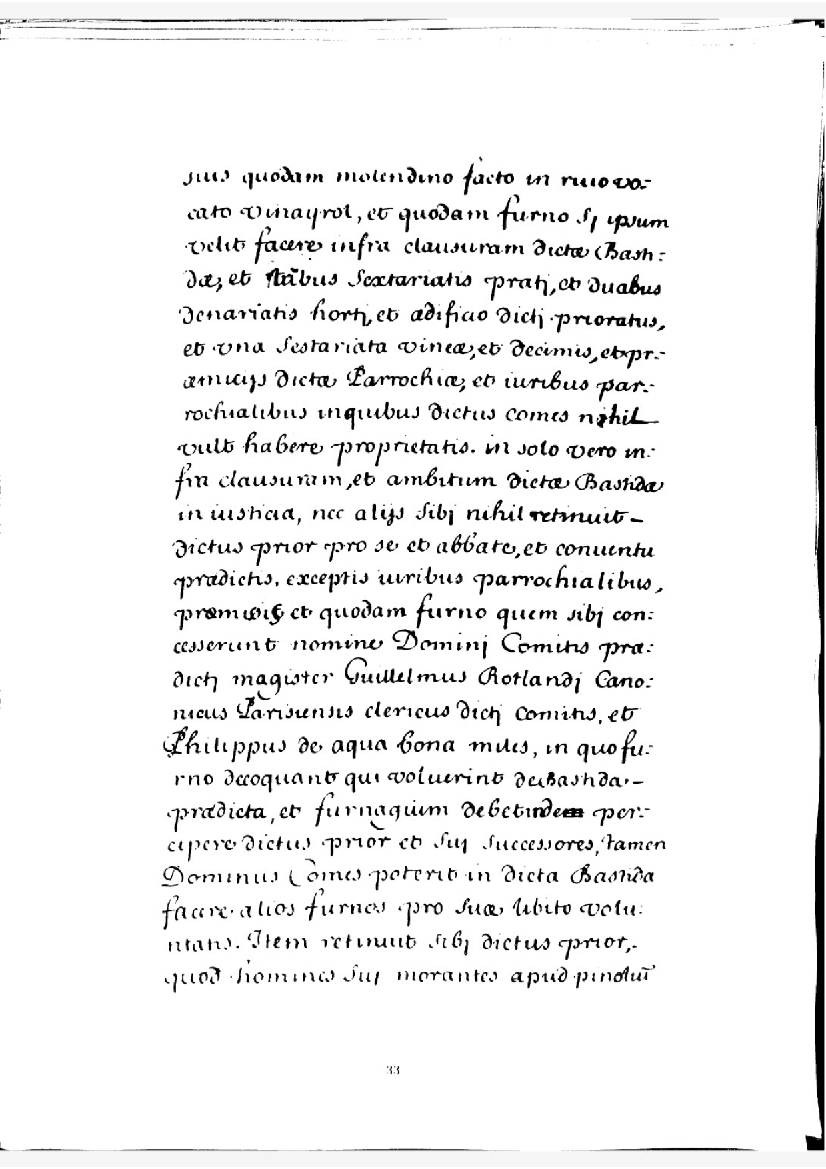 suis quodam molendino facto in riuo vo:
cato vinayrol, et quodam furno sj ipsum
velit facere infra clausuram dictæ Bast:
dæ; et tribus sextariatis pratj, et duabus
denariatis hortj, et adificio dictj prioratus,
et vna sestariata vineæ, et decimis, et pr:
amicijs dictæ Parrochiæ; et iuribus par:
rochialibus inquibus dictus comes nihil
vult habere proprietatis. in solo vero in:
fra clausuram, et ambitum dictæ Bastidæ
in iusticia, nec alijs sibj nihil retinuit –
dictus prior pro se et abbate, et conuentu
prædictis, exceptis iuribus parrochialibus,
præmissis et quodam furno quem sibj con:
cesserunt nomine Dominj Comitis præ:
dictj magister Guillelmus Rotlandj Cano:
nicus Parisiensis clericus dictj comitis, et
Philippus de aqua bona miles, in quo fu:
rno decoquant qui voluerint de Bastida –
prædicta, et furnagium debet indem per:
cipere dictus prior et suj successores, tamen
Dominus Comes poterit in dicta Bastida
facere alios furnos pro suæ libito volu:
ntatis. Item retinuit sibj dictus prior,
quod homines suj morantes apud pinolũ
33